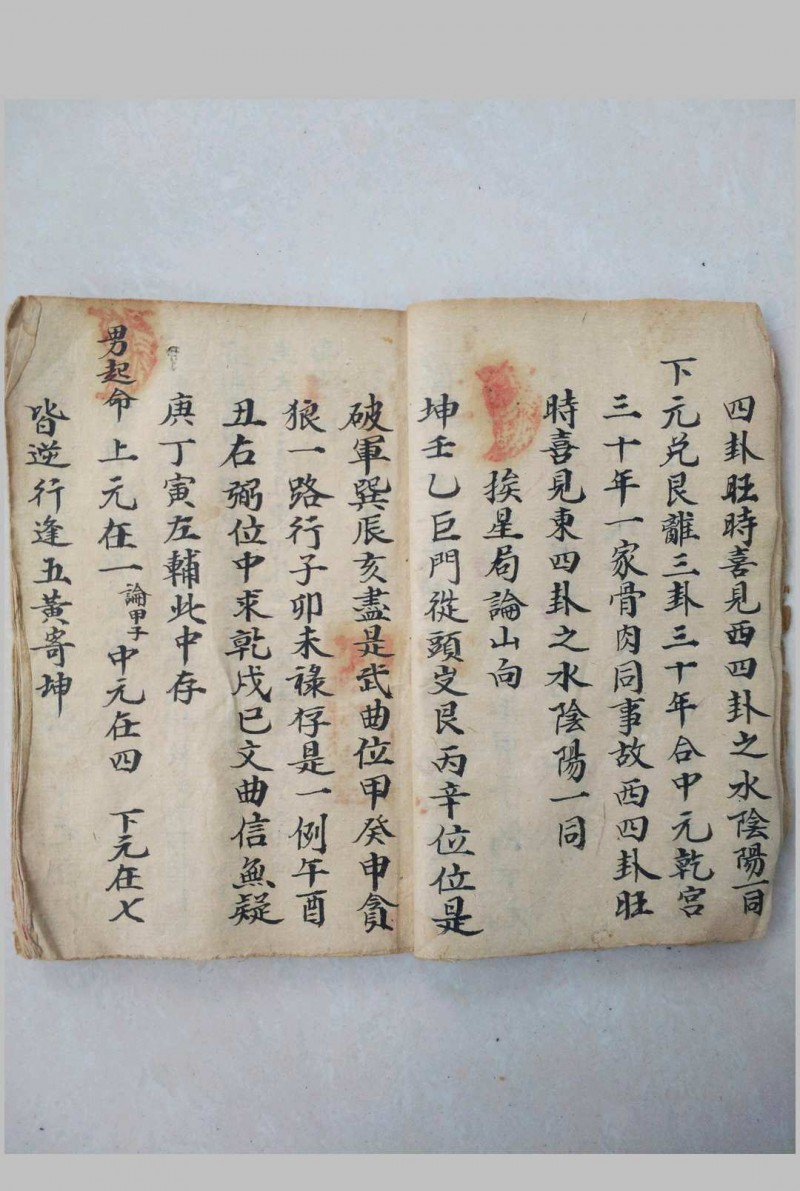 四卦旺時喜見西四卦之水陰陽一同
下元兌艮離三卦三十年合中元乾宮
三十年一家骨肉同事故西四卦旺
時喜見東四卦之水陰陽一同
挨星局論山向
坤壬乙巨門從頭出艮丙辛位位是
破軍巽辰亥盡是武曲位甲癸申貪
狼一路行子卯未祿存是一例午酉
丑右弼位中求乾戌巳文曲信無疑
庚丁寅左輔此中存
男起命上元在一論甲子中元在四 下元在七
皆逆行逢五黃寄坤